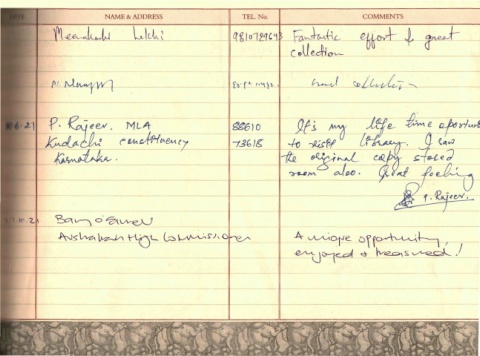 DATE NAME & ADDRESS TEL. No. COMMENTS
Meenakshi Lekhi 9810729643 Fantastic effort & great
collection
collection
P. Rajeev. MLA 88610 It's my life time oportun
Kudachi constituency 73618 to visit library. I saw
Karnataka. the original copy stored
room also. Great feeling
P. Rajeev.
Barry O'Farrell
Australian High Commissioner A unique opportunity,
enjoyed & treasured!